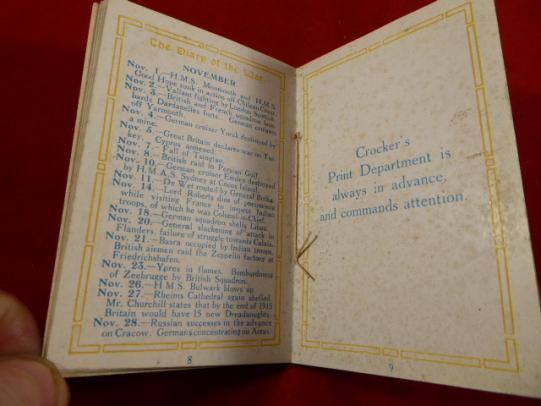 The Diary of the War
NOVEMBER
Nov. 1.—H.M.S. Monmouth and H.M.S.
Good Hope sunk in action off Chilean Coast.
Nov. 2.—Valiant fighting by London Scottish.
Nov. 3.—British and French squadron bom-
bards Dardanelles forts. German cruisers
off Yarmouth.
Nov. 4.—German cruiser Yorck destroyed by
a mine.
Nov. 5.—Great Britain declares war on Tur-
key. Cyprus annexed.
Nov. 7.—Fall of Tsingtau.
Nov. 8.—British raid in Persian Gulf.
Nov. 10.—German cruiser Emden destroyed
by H.M.A.S. Sydney at Cocos Island.
Nov. 11.—De Wet routed by General Botha.
Nov. 14.—Lord Roberts dies of pneumonia
while visiting France to inspect Indian
troops, of which he was Colonel-in-Chief.
Nov. 18.—German squadron shells Libau.
Nov. 20.—General slackening of attack in
Flanders, failure of struggle towards Calais.
Nov. 21.—Basra occupied by Indian troops.
British airmen raid the Zeppelin factory at
Friedrichshafen.
Nov. 23.—Ypres in flames. Bombardment
of Zeebrugge by British Squadron.
Nov. 26.—H.M.S. Bulwark blows up.
Nov. 27.—Rheims Cathedral again shelled.
Mr. Churchill states that by the end of 1915
Britain would have 15 new Dreadnoughts.
Nov. 28.—Russian successes in the advance
on Cracow. Germans concentrating on Arras.
8
Crocker's
Print Department is
always in advance,
and commands attention.
9